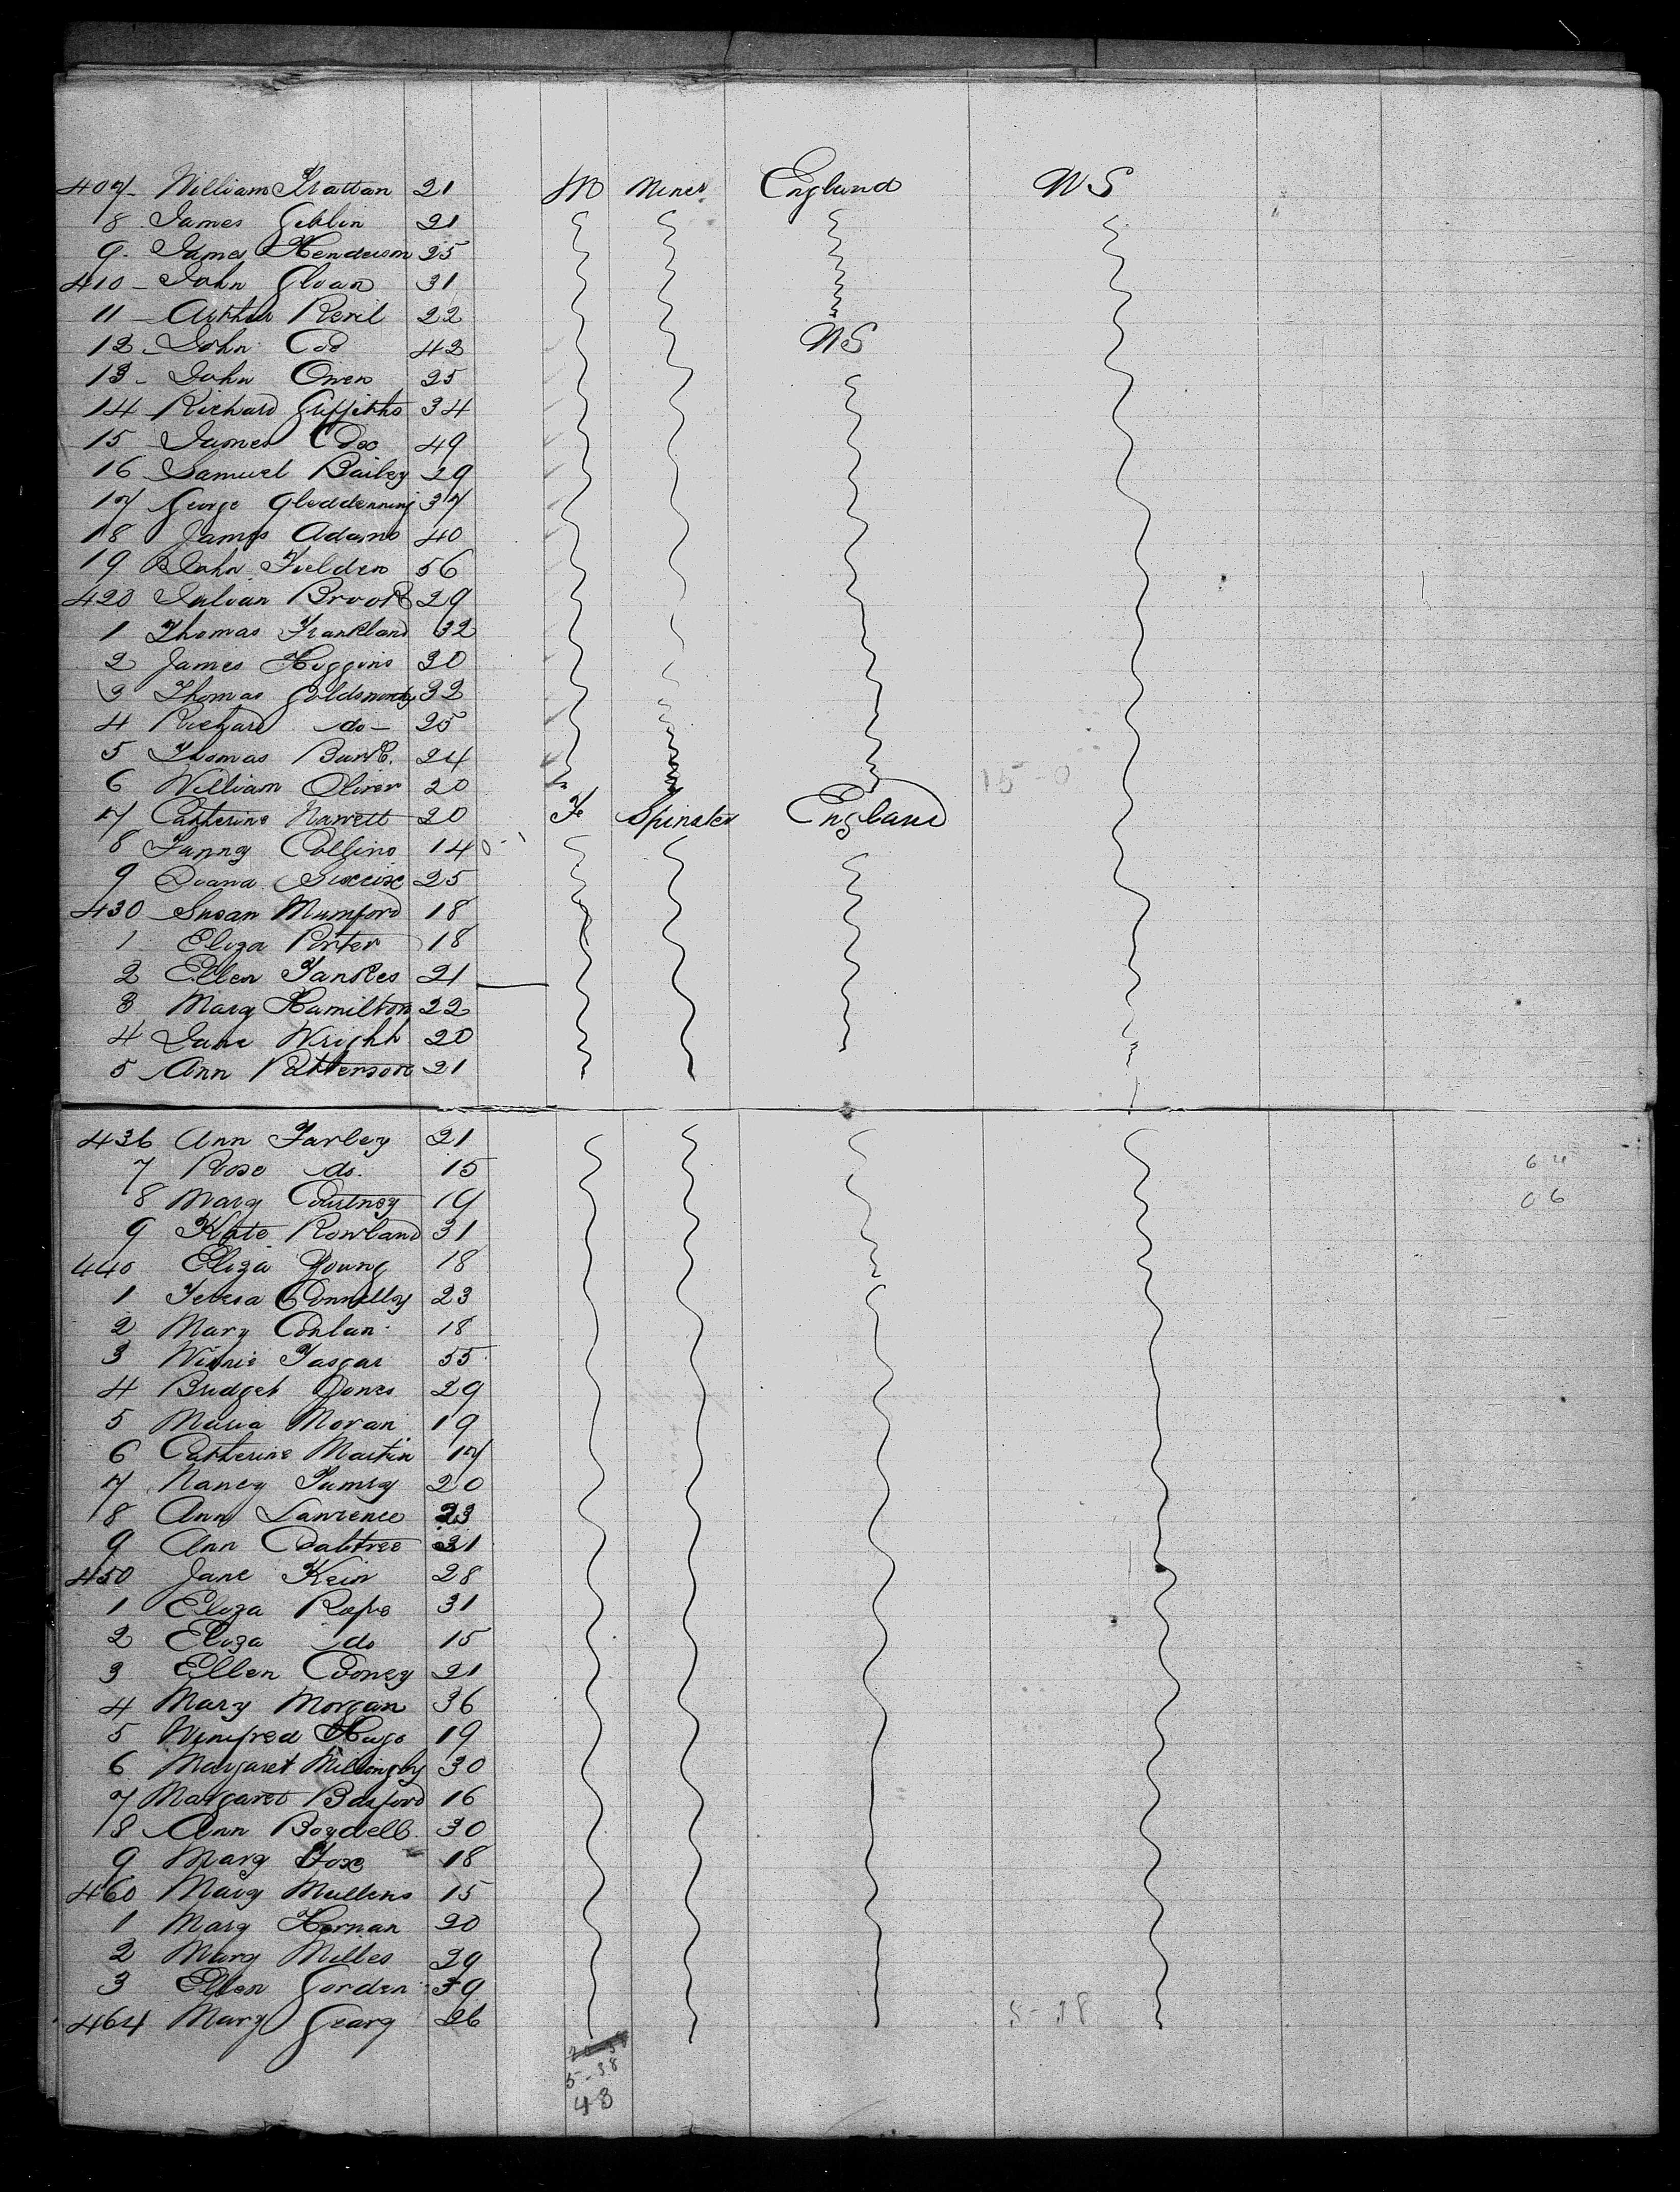 407- William Grattan 21 M Miner England U S
8 James Giblin 21
9. James Henderson 25
410- John Sloan 31
11- Arthur Revil 22
12- John Coe 42 U S
13- John Owen 25
14 Richard Griffiths 34
15 James Cox 49
16 Samuel Bailey 29
17 George Gleddenning 37
18 James Adams 40
19 John Fielden 56
420 Julian Brook 29
1 Thomas Frankland 32
2 James Higgins 20
3 Thomas Goldsmondy 32
4 Richard do- 25
5 Thomas Burk. 24
6 William Oliver 20 15-0
7 Catherine 20 Fe Spinster England
8 Fanny Collins 14
9 Diana 25
430 Susan Mumford 18
1 Eliza Porter 18
2 Ellen Jankes 21
3 Mary Hamilton 22
4 Jane Wright 20
5 Ann Patterson 21
436 Ann Farley 21
7 Rose do. 15
8 Mary Courtney 19
9 Kate Rowland 31
440 Eliza Young 18
1 Teresa Connelly 23
2 Mary Conlan 18
3 Winnie 55
4 Bridget Jones 29
5 Maria Moran 19
6 Catherine Martin 17
7 Nancy 20
8 Ann Lawrence 23
9 Ann Crabtree 31
450 Jane Kein 28
1 Eliza Rope 31
2 Eliza do 15
3 Ellen Cooney 21
4 Mary Morgan 36
5 Winifred Hugo 19
6 Margaret 30
7 Margaret Basford 16
8 Ann Boydell 30
9 Mary Fox 18
460 Mary Mullens 15
1 Mary Hernan 20
2 Mary Milles 29
3 Ellen Gorden 39
464 Mary Geary 26 5-38
5-38
48